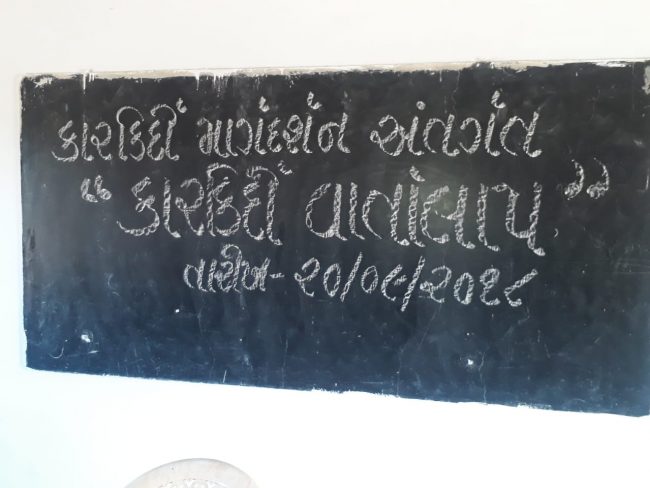 કારકિર્દી માર્ગદર્શન અંતર્ગત
“ કારકિર્દી વાર્તાલાપ ”
તારીખ- ૨૦/૦૯/૨૦૧૮